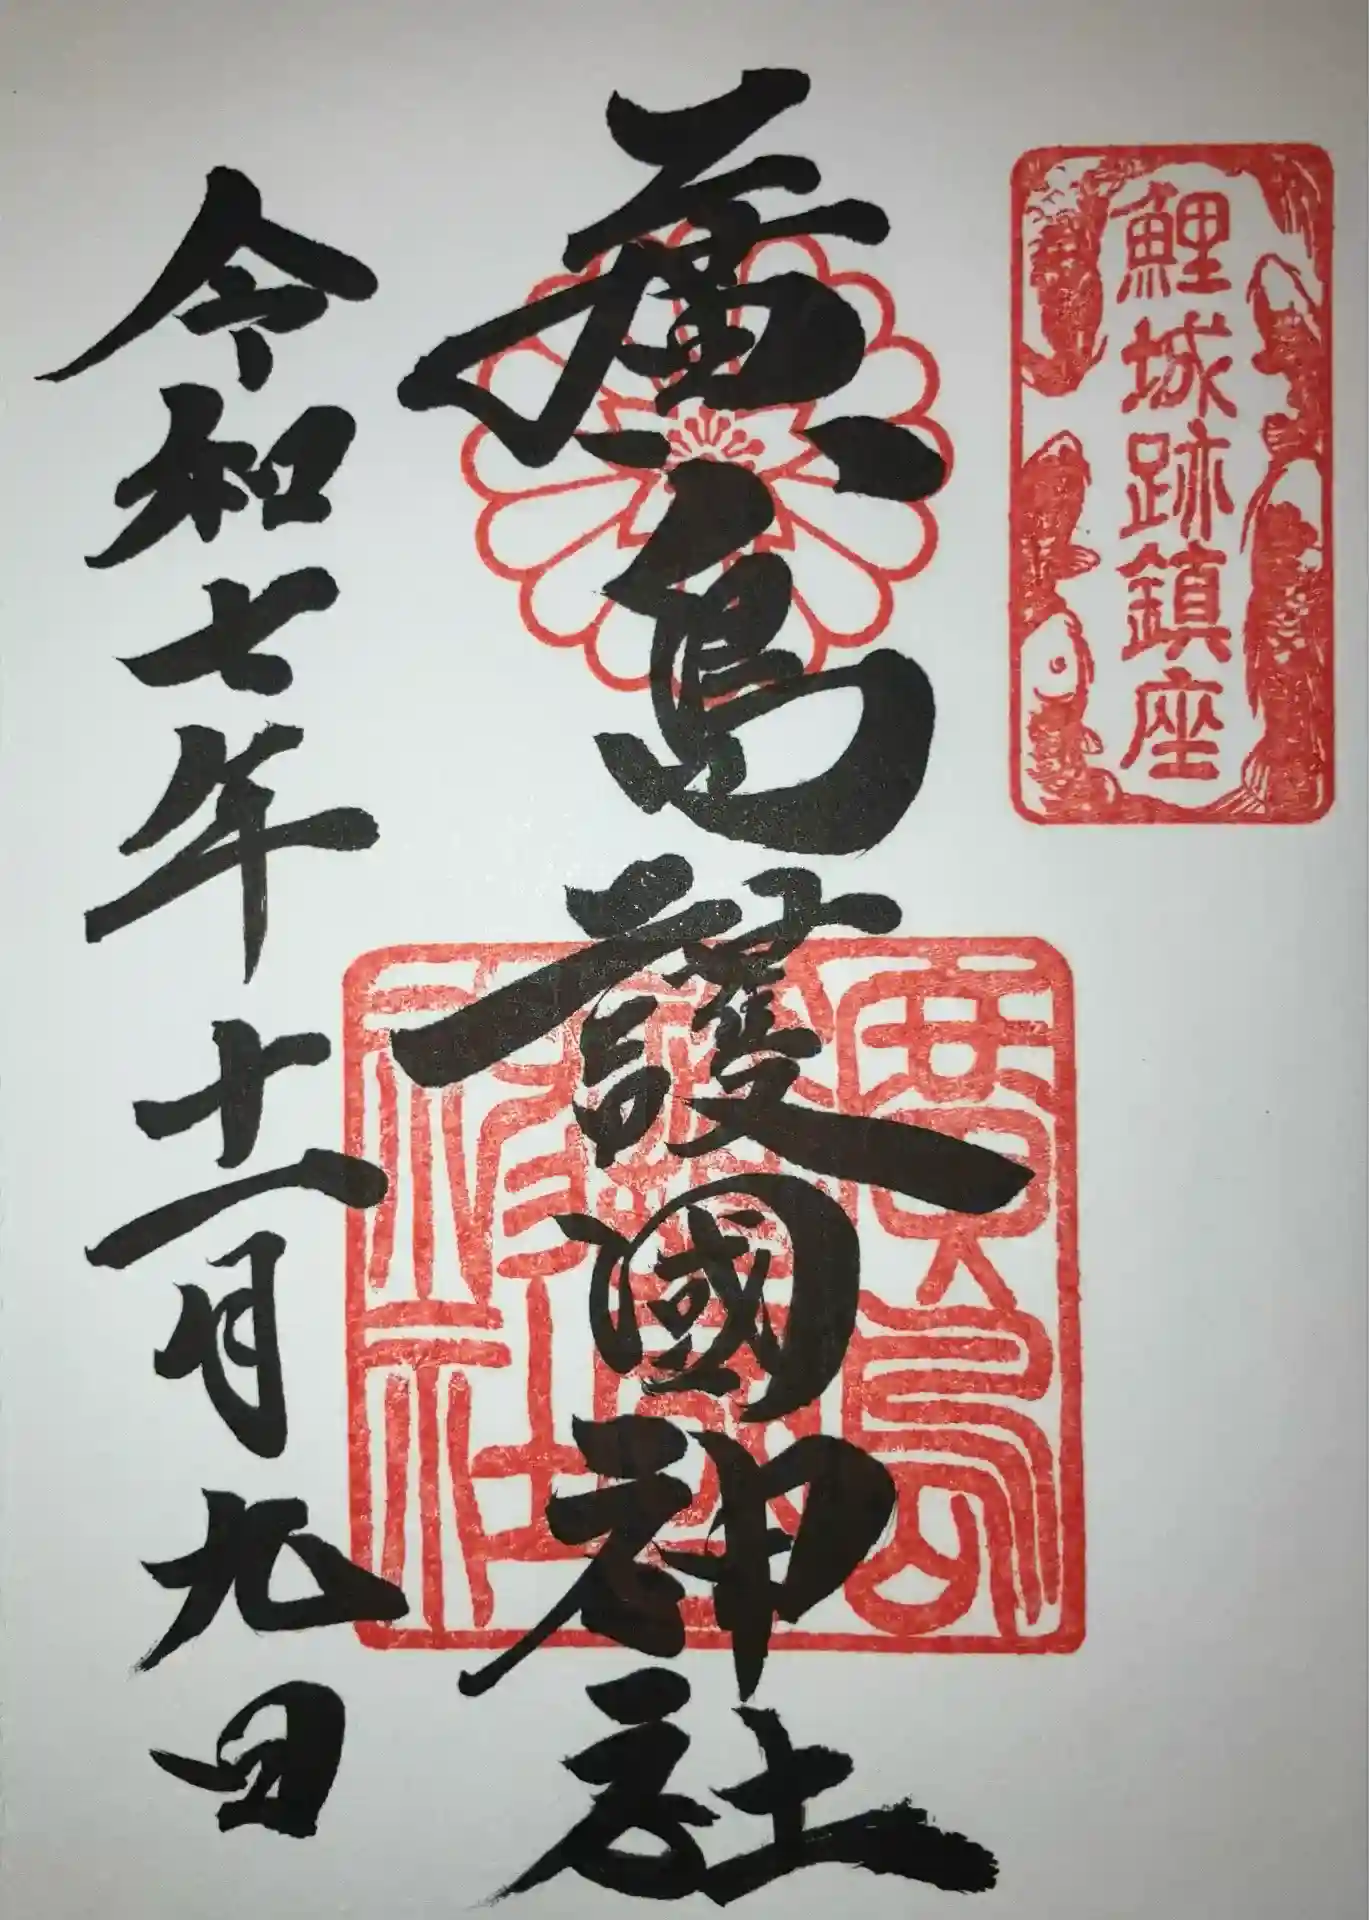 鯉城跡鎮座
廣島護國神社
廣島
護國
神社
令和七年十一月九日